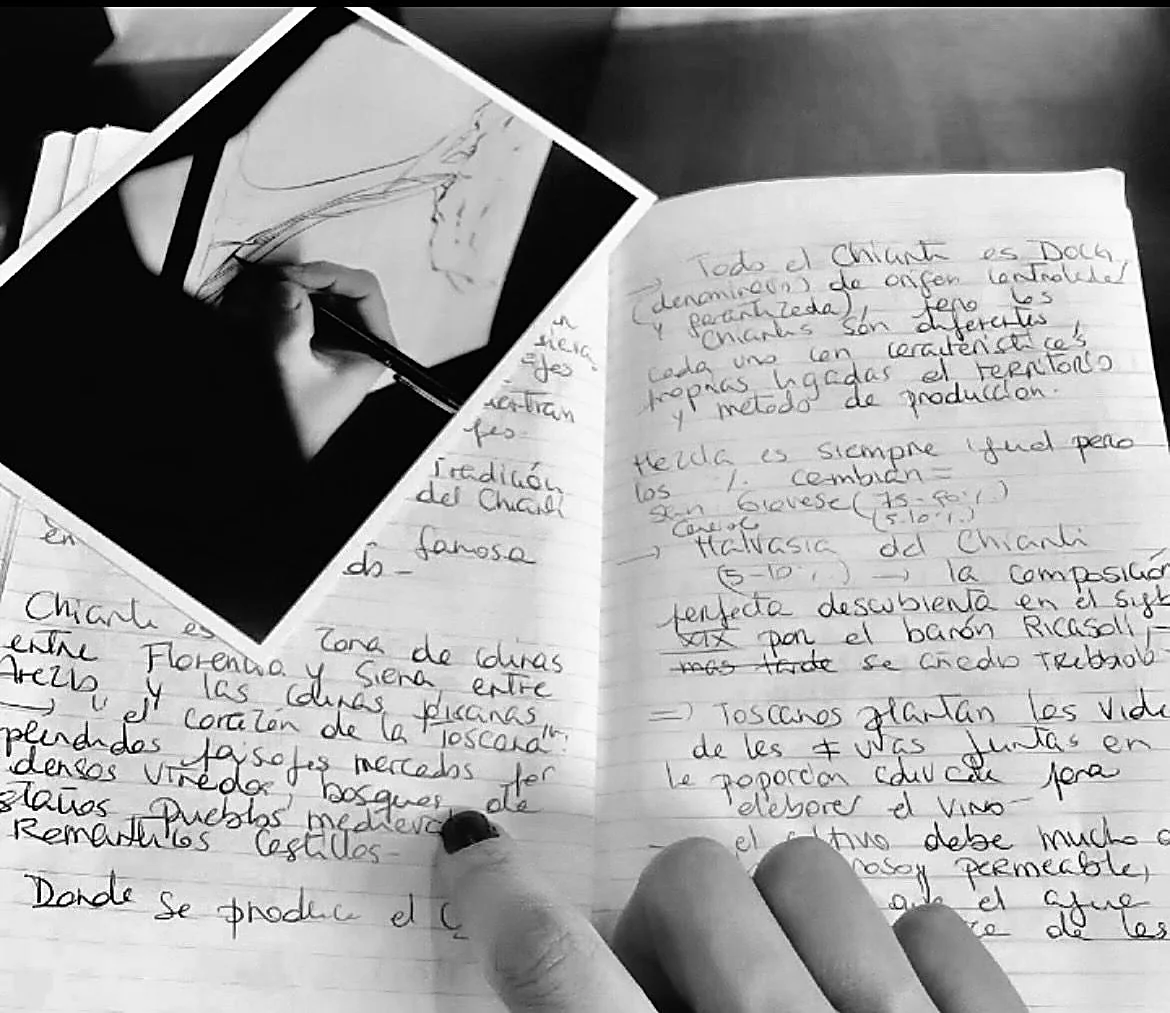 en
Tradición
del Chianti
famosa
Chianti es zona de colinas
entre Florencia y Siena entre
Arezzo y las colinas pisanas
→ "el corazón de la Toscana":
paisajes mercados por
densos viñedos, bosques de
Pueblos medieva
Romanticos Castillos
Donde se produce el C
→ Todo el Chianti es DOCG
(denominacion) de origen controlada
y garantizada), pero los
Chiantis son diferentes,
cada uno con caracteristicas
propias ligadas el territorio
y metodo de producción.
Mezcla es siempre igual pero
los % cambian =
San Giovese (75-90%)
Canaiolo (5-10%)
→ Malvasia del Chianti
(5-10%) → la composición
perfecta descubierta en el siglo
XIX por el barón Ricasoli,
mas tarde se añedio Trebbiolo
=) Toscanos plantan las vide
de les ≠ uvas juntas en
le poporcion adecuada para
elaborar el vino
el cultivo debe mucho a
permeable,
que el agua
de las